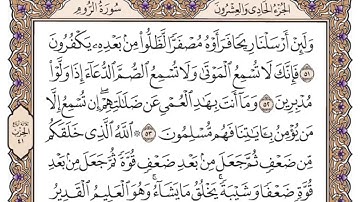 الجزء الحادي والعشرون سورة الروم
وَلَئِنْ أَرْسَلْنَا رِيحًا فَرَأَوْهُ مُصْفَرًّا لَّظَلُّوا مِنۢ بَعْدِهِۦ يَكْفُرُونَ
٥١ فَإِنَّكَ لَا تُسْمِعُ ٱلْمَوْتَىٰ وَلَا تُسْمِعُ ٱلصُّمَّ ٱلدُّعَآءَ إِذَا وَلَّوْا۟
مُدْبِرِينَ ٥٢ وَمَآ أَنتَ بِهَـٰدِ ٱلْعُمْىِ عَن ضَلَـٰلَتِهِمْ ۖ إِن تُسْمِعُ إِلَّا
مَن يُؤْمِنُ بِـَٔايَـٰتِنَا فَهُم مُّسْلِمُونَ ٥٣ ۞ ٱللَّهُ ٱلَّذِى خَلَقَكُم
مِّن ضَعْفٍ ثُمَّ جَعَلَ مِنۢ بَعْدِ ضَعْفٍ قُوَّةً ثُمَّ جَعَلَ مِنۢ بَعْدِ
قُوَّةٍ ضَعْفًا وَشَيْبَةً ۚ يَخْلُقُ مَا يَشَآءُ ۖ وَهُوَ ٱلْعَلِيمُ ٱلْقَدِيرُ
الحزب
٤١